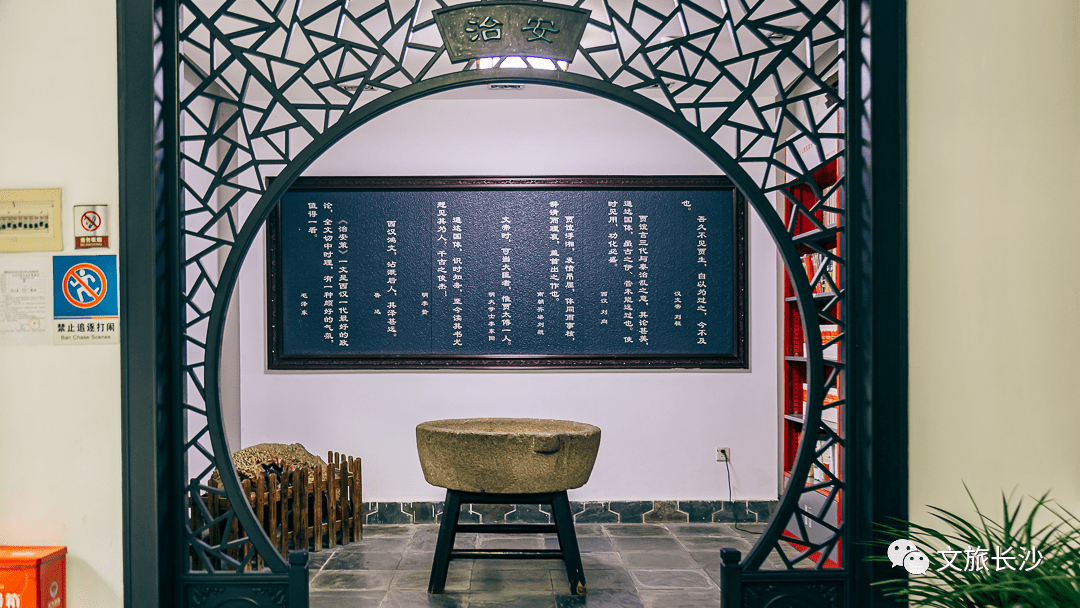 治安
吾久不见贾生，自以为过之，今不及
也。
汉文帝 刘恒
贾谊言三代与秦治乱之意，其论甚美，
通达国体，虽古之伊、管未能远过也。使
时见用，功化必盛。
西汉 刘向
贾谊浮湘，发愤吊屈，体同而事核，
辞清而理哀，盖首出之作也。
南朝齐梁刘勰
文帝时，可当大臣者，惟贾太傅一人。
明大学士李东阳
通达国体，识时知务，至今读其书尤
想见其为人，千古之俊杰！
明李贽
西汉鸿文，沾溉后人，其泽甚远。
鲁迅
《治安策》一文是西汉一代最好的政
论，全文切中时理，有一种颇好的气氛，
值得一看。
毛泽东
请勿吸烟
禁止追逐打闹
Ban Chase Scenes
文旅长沙